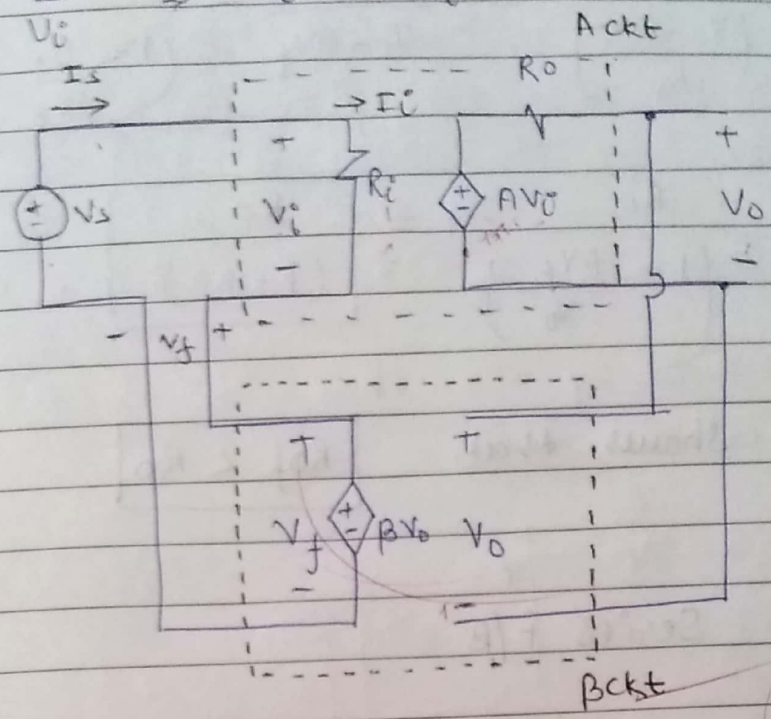 Vi
A ckt
Is
Ro
→ Ii
+
+
Ri
+
-
Vs
Vi
+
-
AVi
Vo
-
-
-
Vf
+
+
+
+
-
Vf
βVo
Vo
-
-
βckt